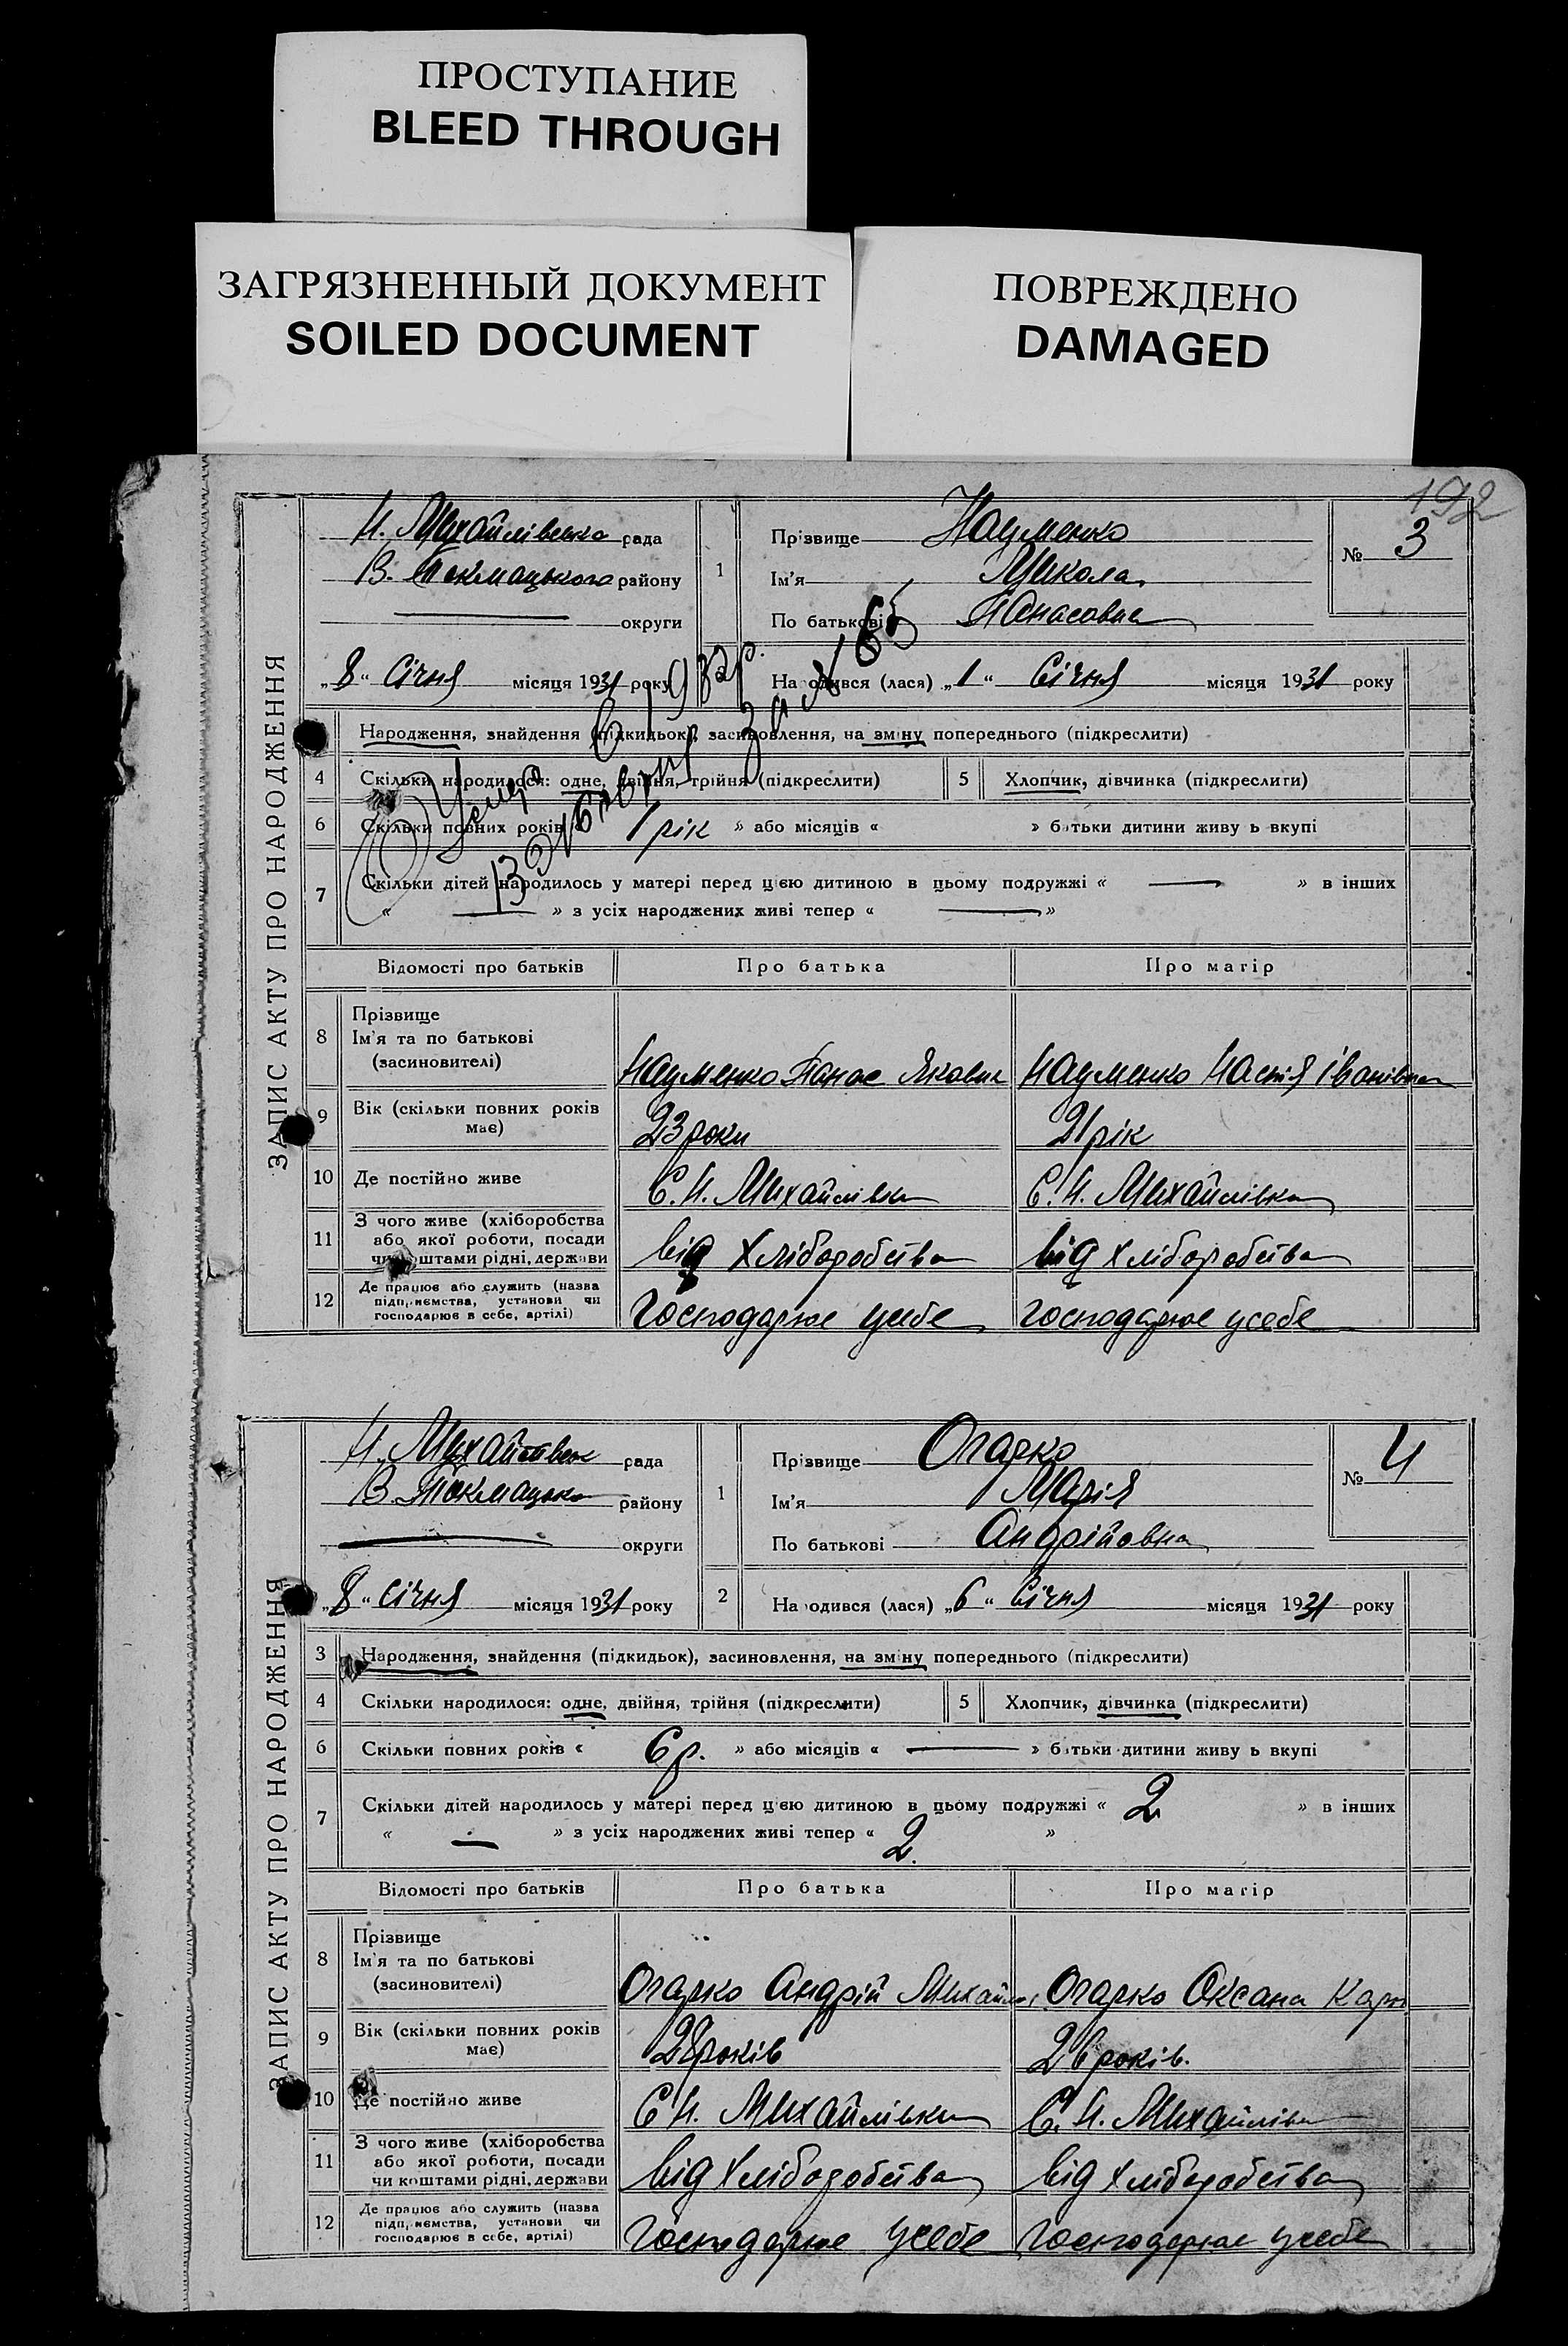 ПРОСТУПАНИЕ
BLEED THROUGH
ЗАГРЯЗНЕННЫЙ ДОКУМЕНТ
SOILED DOCUMENT
ПОВРЕЖДЕНО
DAMAGED
192
ЗАПИС АКТУ ПРО НАРОДЖЕННЯ
Н. Михайлівська рада
В. Токмацького району
округи
„8“ Січня місяця 1931 року
1
Прізвище Науменко
Ім'я Микола
По батькові Панасовис
№ 3
Народився (лася) „1“ Січня місяця 1931 року
Народження, знайдення (підкидьок), засиновлення, на зміну попереднього (підкреслити)
4 Скільки народилося: одне, двійня, трійня (підкреслити) 5 Хлопчик, дівчинка (підкреслити)
6 Скільки повних років « 1 рік » або місяців « » батьки дитини живуть вкупі
7 Скільки дітей народилось у матері перед цією дитиною в цьому подружжі « — » в інших
« — » з усіх народжених живі тепер « — »
Помер 13 в 1932р. за № 65
Відомості про батьків Про батька Про матір
8 Прізвище
Ім'я та по батькові
(засиновителі)
Науменко Панас Якович Науменко Настя Іванівна
9 Вік (скільки повних років має) 23 роки 21 рік
10 Де постійно живе С. Н. Михайлівка С. Н. Михайлівка
11 З чого живе (хліборобства
або якої роботи, посади
чи коштами рідні, держави
від хліборобства від хліборобства
12 Де працює або служить (назва
підприємства, установи чи
господарює в себе, артілі)
Господарює усебе Господарює усебе
ЗАПИС АКТУ ПРО НАРОДЖЕННЯ
Н. Михайлівськ рада
В. Токмацько району
округи
„8“ січня місяця 1931 року
1
Прізвище Огарко
Ім'я Марія
По батькові Андрійовна
№ 4
2 Народився (лася) „6“ Січня місяця 1931 року
3 Народження, знайдення (підкидьок), засиновлення, на зміну попереднього (підкреслити)
4 Скільки народилося: одне, двійня, трійня (підкреслити) 5 Хлопчик, дівчинка (підкреслити)
6 Скільки повних років « 6 р. » або місяців « — » батьки дитини живуть вкупі
7 Скільки дітей народилось у матері перед цією дитиною в цьому подружжі « 2 » в інших
« — » з усіх народжених живі тепер « 2. »
Відомості про батьків Про батька Про матір
8 Прізвище
Ім'я та по батькові
(засиновителі)
Огарко Андрій Михайл Огарко Оксана Карп
9 Вік (скільки повних років має) 28 років 26 років.
10 Де постійно живе С Н. Михайлівка С. Н. Михайлівка
11 З чого живе (хліборобства
або якої роботи, посади
чи коштами рідні, держави
від хліборобства від хліборобства
12 Де працює або служить (назва
підприємства, установи чи
господарює в себе, артілі)
Господарює усебе Господарює усебе